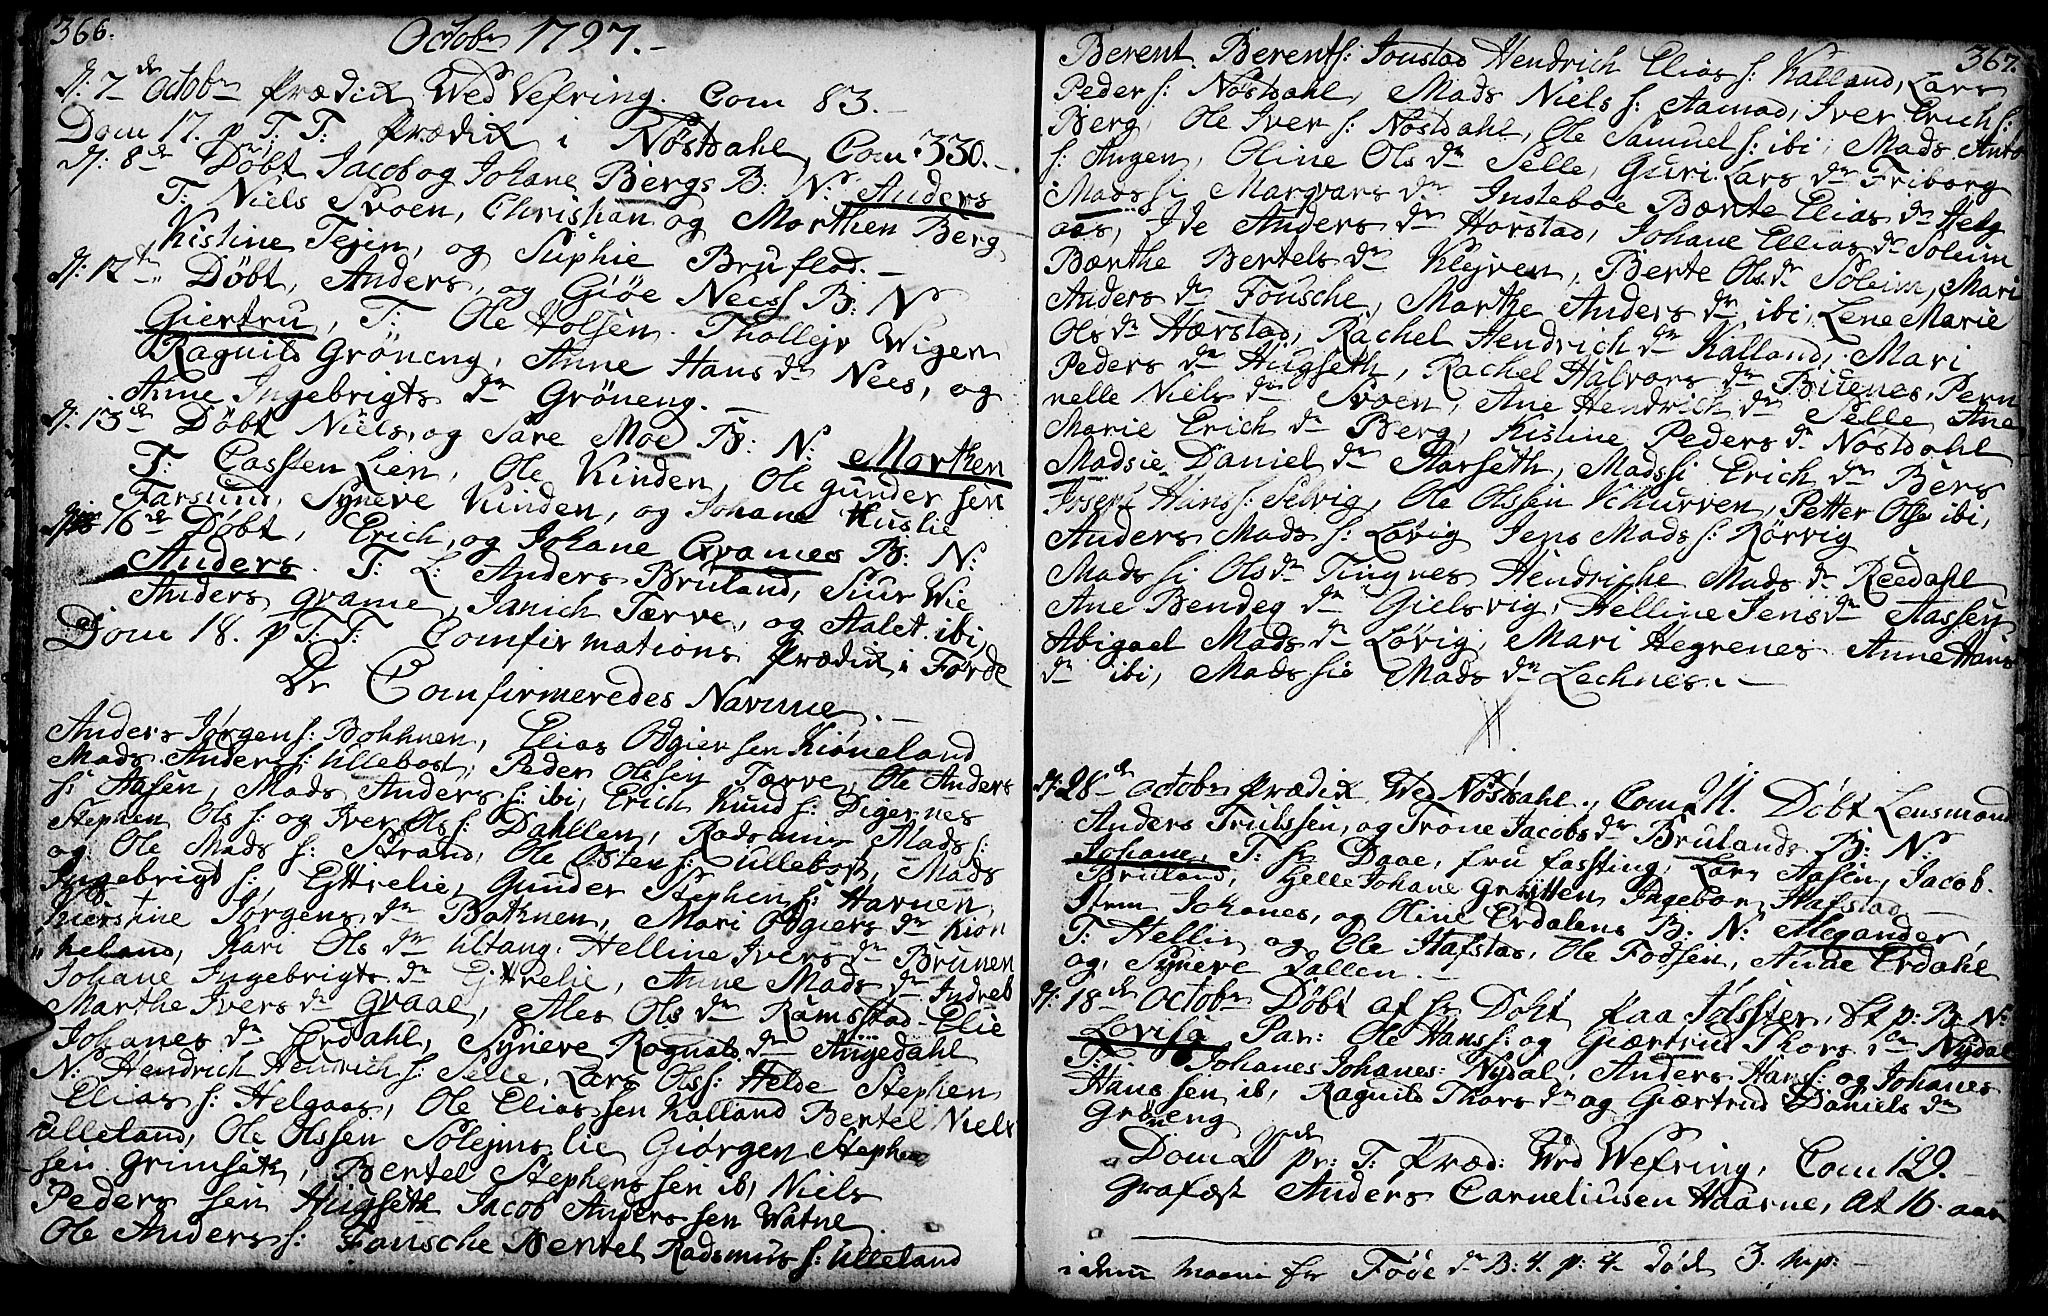 366.
Octobr 1797.
d: 7de Octobr Prædik Wed Vefring. Com 83.
Dom 17. p T: T: Prædik i Nøstdahl, Com: 330.
d: 8de Døbt Jacob og Johane Bergs B: N: Anders
T: Niels Svoen, Christian og Morthen Berg
Kistine Tejen, og Suphie Bruflod.
d: 12te Døbt, Anders, og Giøe Nees B: N
Giertru, T: Ole Holsen. Thollejv Wigen
Ragnild Grøneng, Anne Hans dr Nees, og
Anne Ingebrigts dr Grøneng.
d: 13de Døbt Niels, og Sare Moe B: N: Morthen
T: Cassten Lien, Ole Kinden, Ole gunder sen
Farsund, Syneve Kinden, og Johane Huslie
16de Døbt, Erich, og Johane Grames B: N:
Anders. T: L: Anders Bruland, Siur Wie
Anders grame, Janich Tærve, og Aalet ibi,
Dom 18. p T: T: Comfirmations Prædik i Førde
Dr Comfirmeredes Navnne.
Anders Jørgens: Bohnnen, Elias Odgiersen Kiøneland
Mads Anders: Ullebost, Peder Olssen Tærve, Ole Anders
s: Aasen, Mads Anders s: ibi, Erich Knud s: Digernes
Stephen Ols s: og Iver Ols s: Dahllen, Radsmus Mads s:
og Ole Mads s: Strand, Ole Østen s: Ullebost, Mads
Ingebrigt s: Ettrelie, Gunder Stephen s: Harnen,
Kierstine Jørgens dr Bothnen, Mari Odgiers dr Kiøn
neland, Kari Ols dr Ultang. Helline Ivers dr Brunen
Johane Ingebrigts dr Ettrelie, Anne Mads dr Indreb
Marthe Ivers dr Graae, Ales Ols dr Ramsstad Elie
Johanes dr Erdahl, Syneve Rognals dr Angedahl
N: Hendrich Henrich s: Selle, Lars Ols s: Helde Stephen
Elias s: Helgaas, Ole Elias sen Kalland Bertel Niels
Ulleland, Ole Olssen Solejms lie Giørgen Stephen
sen Grimseth, Bertel Stephens sen ibi Niels
Peders sen Hugseth Jacob Anders sen Watne
Ole Anders s: Fousche Bertel Radsmus s: Ulleland
367.
Berent Berents: Joustad Hendrich Elias s: Kalland, Lars
Peder s: Nøstdahl, Mads Niels s: Aamod, Iver Erich s:
Berg, Ole Iver s: Nøstdahl, Ole Samuel s: ibi, Mads Anto
s: Angen, Oline Ols dr Selle, Guri Lars dr Friborg
Mads si Margvars dr Instebøe Bærte Elias dr Helg
aas, Ide Anders dr Horstad, Johane Ellias dr Soleim
Bærthe Bertels dr Klejven, Berte Ols dr Soleim, Mari
Anders dr Fousche, Marthe Anders dr ibi, Lene Marie
Ols dr Hærstad, Rachel Hendrich dr Kalland, Mari
Peders dr Hugseth, Rachel Halvors dr Buenes, Pern
nelle Niels dr Svoen, Ane Hendrich dr Selle Ane
Marie Erich dr Berg, Kistine Peders dr Nøstdahl
Madsie Daniel dr Aarseth, Madssi Erich dr Berg
Joseph Hans s: Selvig, Ole Olssen Schurven, Petter Ols ibi,
Anders Mads s: Løvig Jens Mads s: Rørvig
Mads si Ols dr Tingnes Hendriche Mads dr Reedahl
Ane Bendeg dr Gielsvig, Helline Jens dr Aassen
Abigael Mads dr Løvig, Mari Hegrenes Anne Hans
dr ibi, Mads sie Mads dr Lechnes.
d: 28de Octobr Prædik Wed Nøstdahl, Com 211. Døbt Lensmand
Anders Trulssen, og Trone Jacobs dr Brulands B: N:
Johane, T: hr Daae, fru fassting, Lars Aasen, Jacob
Bruland, Jelle Johane Gritten Ingebor Hafstad
Item Johanes, og Oline Erdalens B: N: Megander,
T: Hellin og Ole Hafstad, Ole Fodsen, Anne Erdahl
og Syneve Dallen.
d: 18de Octobr Døbt af hr Doht paa Jølster, Et p: B N:
Lovisa Par: Ole Hans s: og Giærtrud Thors dr Nydal
T: Johanes Johanes: Nydal, Anders Hans: og Johanes
Hanssen ib, Ragnild Thors dr og Giærtrud Daniels dr
Grøneng
Dom 20de pr: T: Præd: Wed Wefring, Com 129.
Grafæst Anders Carneliusen Haarne, at 16 aar
i denne maane fr Føde dr B: 4. p: 4. døde 3. mp: